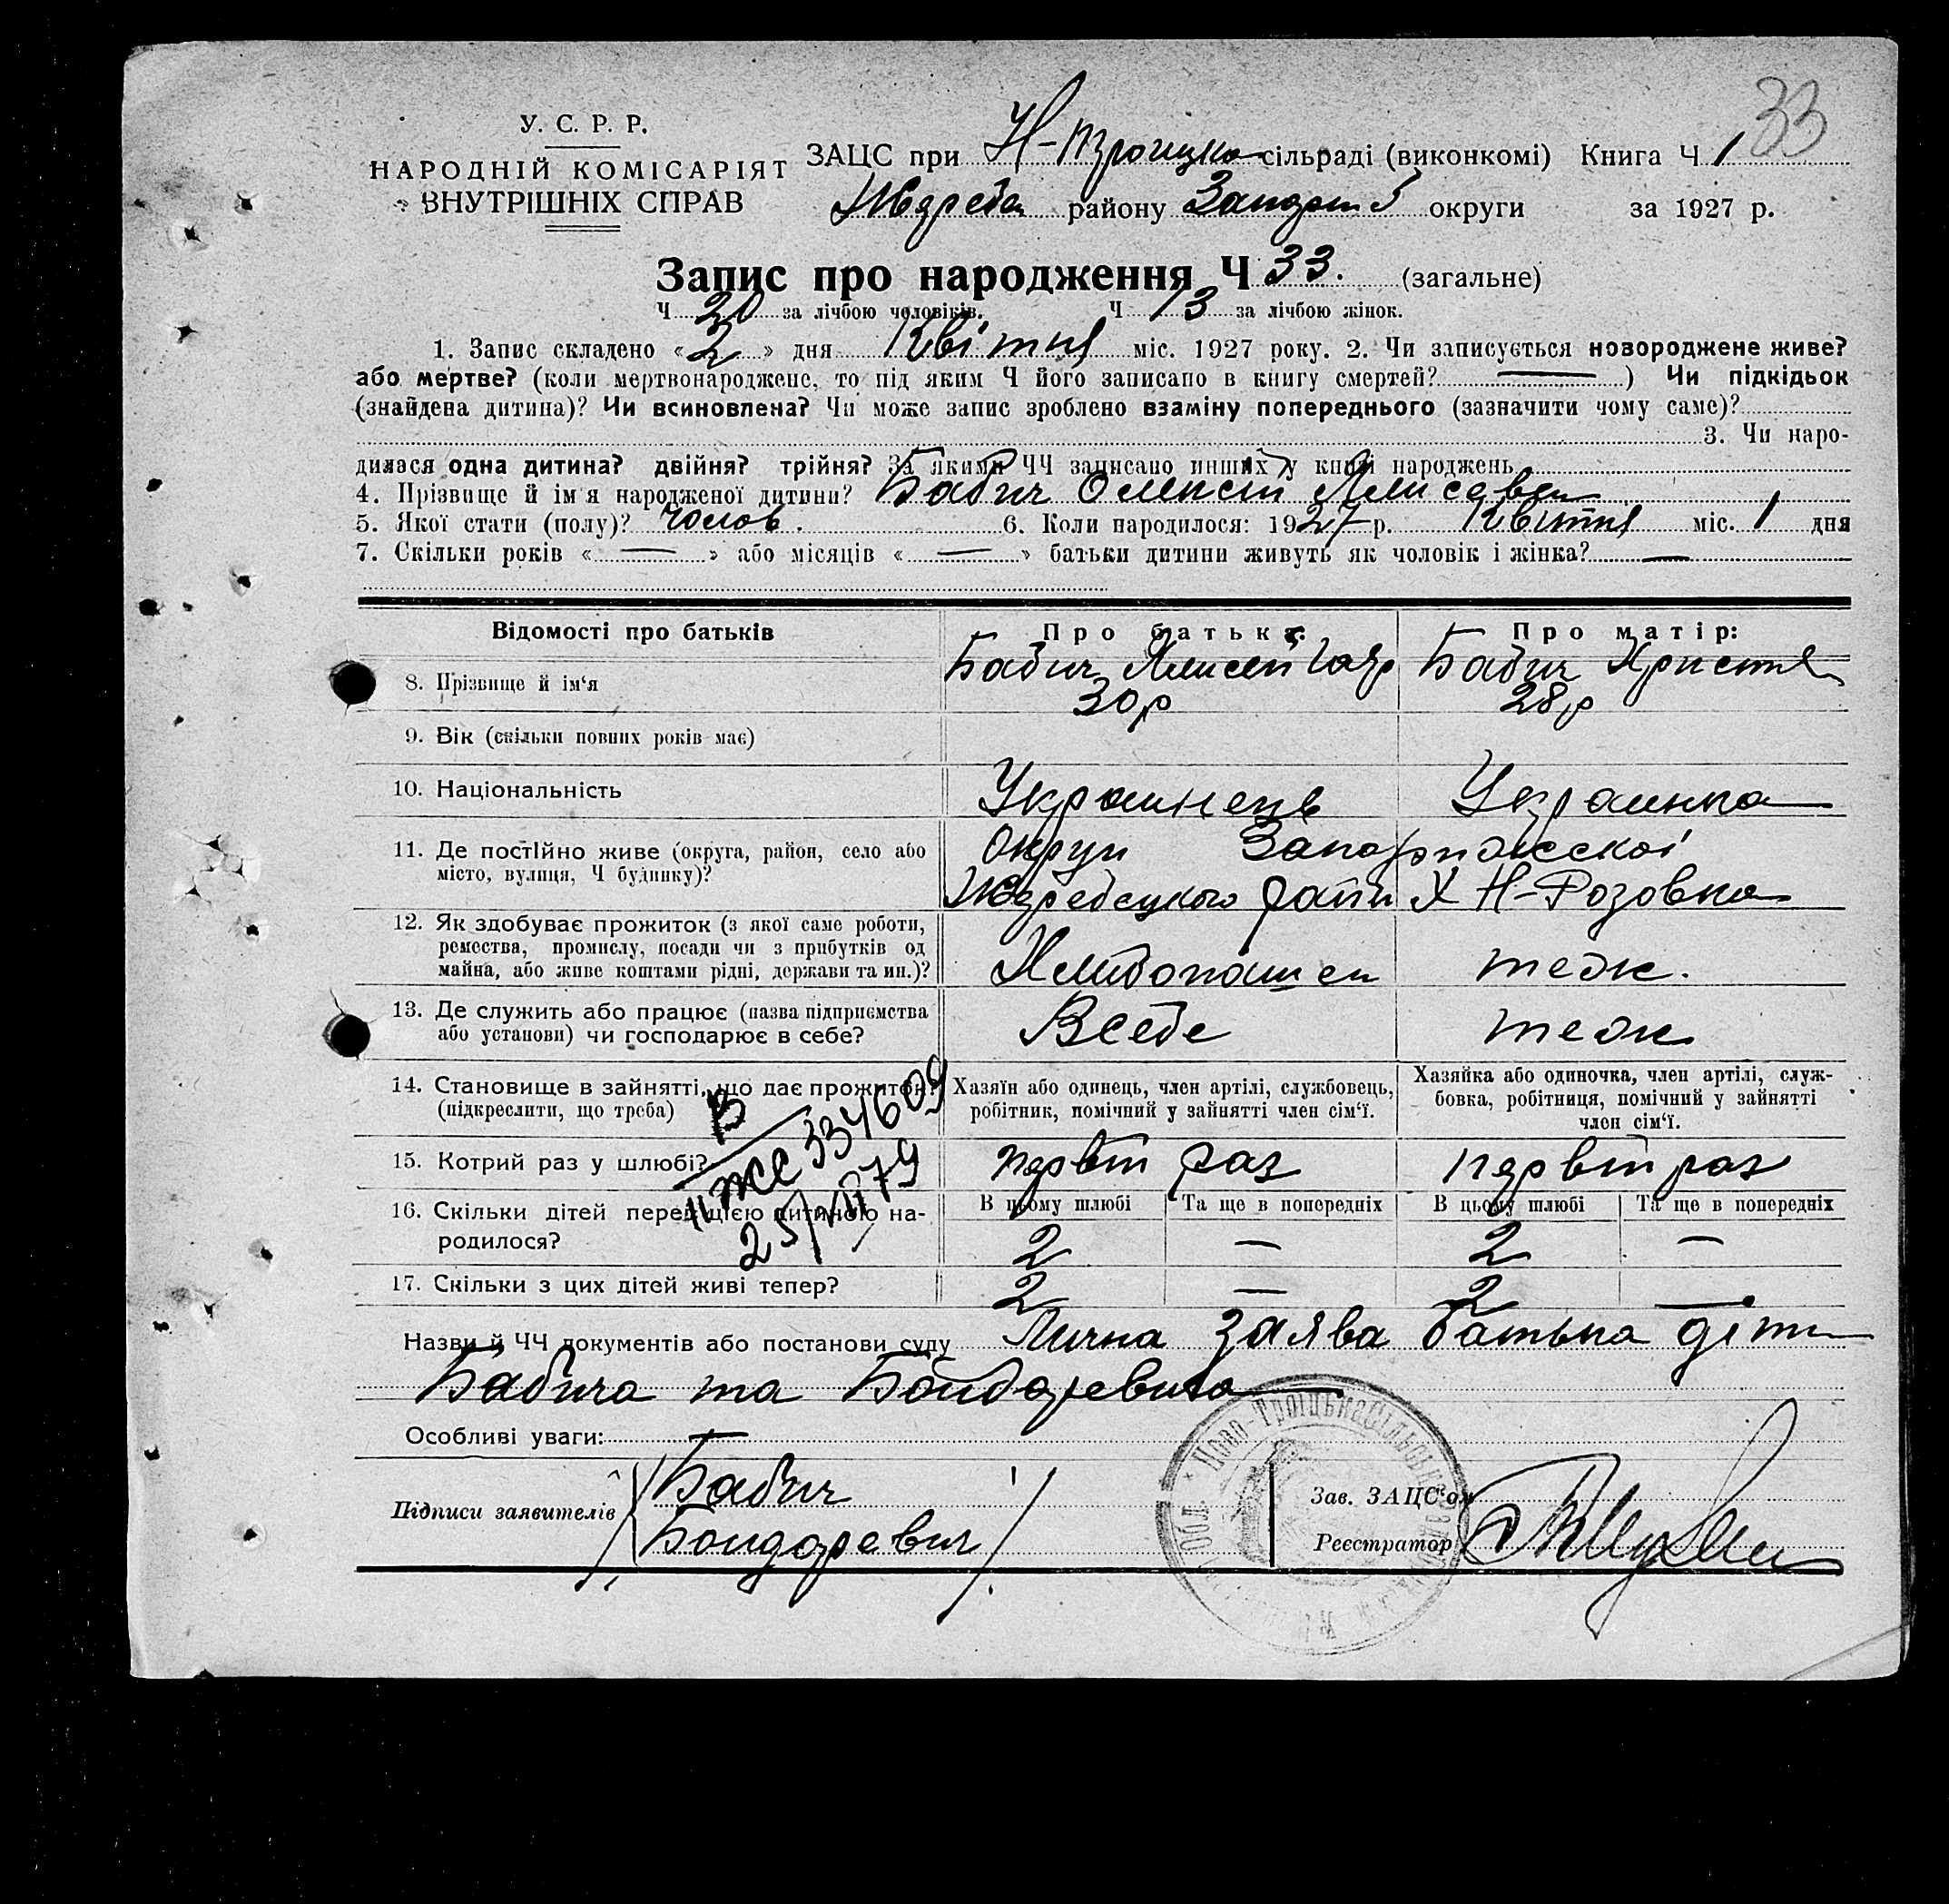 33
У. С. Р. Р.
НАРОДНІЙ КОМІСАРІЯТ
ВНУТРІШНІХ СПРАВ
ЗАЦС при Н-Троицко сільраді (виконкомі) Книга Ч 1
Жереб району Запор округи за 1927 р.
Запис про народження Ч 33. (загальне)
Ч 20 за лічбою чоловіків. Ч 13 за лічбою жінок.
1. Запис складено « 2 » дня Квітня міс. 1927 року. 2. Чи записується новороджене живе?
або мертве? (коли мертвонароджене, то під яким Ч його записано в книгу смертей? — ) Чи підкідьок
(знайдена дитина)? Чи всиновлена? Чи може запис зроблено взаміну попереднього (зазначити чому саме)?
3. Чи наро-
дилася одна дитина? двійня? трійня? За якими ЧЧ записано инших у книзі народжень
4. Прізвище й ім'я народженої дитини? Бабич Олексій
5. Якої стати (полу)? чолов. 6. Коли народилося: 1927 р. Квітня міс. 1 дня
7. Скільки років « — » або місяців « — » батьки дитини живуть як чоловік і жінка? —
Відомості про батьків Про батька: Про матір:
8. Прізвище й ім'я Бабич Алисей Бабич Христя
30 р 28 р
9. Вік (скільки повних років має)
10. Національність Украинець Украинка
11. Де постійно живе (округа, район, село або Округи Запорижскоі
місто, вулиця, Ч будинку)? Жеребецкого район Х Н-Розовка
12. Як здобуває прожиток (з якої саме роботи,
ремества, промислу, посади чи з прибутків од
майна, або живе коштами рідні, держави та ин.)? Хлибопашец теж.
13. Де служить або працює (назва підприємства
або установи) чи господарює в себе? Всебе теж
14. Становище в зайнятті, що дає прожиток?
(підкреслити, що треба)
Хазяїн або одинець, член артілі, службовець,
робітник, помічний у зайнятті член сім'ї.
Хазяйка або одиночка, член артілі, служ-
бовка, робітниця, помічний у зайнятті
член сім'ї.
ЖС 334609
25/VII 79
15. Котрий раз у шлюбі? первий раз первий раз
16. Скільки дітей перед цією дитиною на-
родилося?
В цьому шлюбі Та ще в попередніх В цьому шлюбі Та ще в попередніх
2 — 2 —
17. Скільки з цих дітей живі тепер? 2 — 2 —
Назви й ЧЧ документів або постанови суду Лична заява батька
Бабича та Бондаревича
Особливі уваги:
Підписи заявителів Бабич
Бондаревич
Зав. ЗАЦС'ом
Реєстратор
Ново-Троіцька Сільська